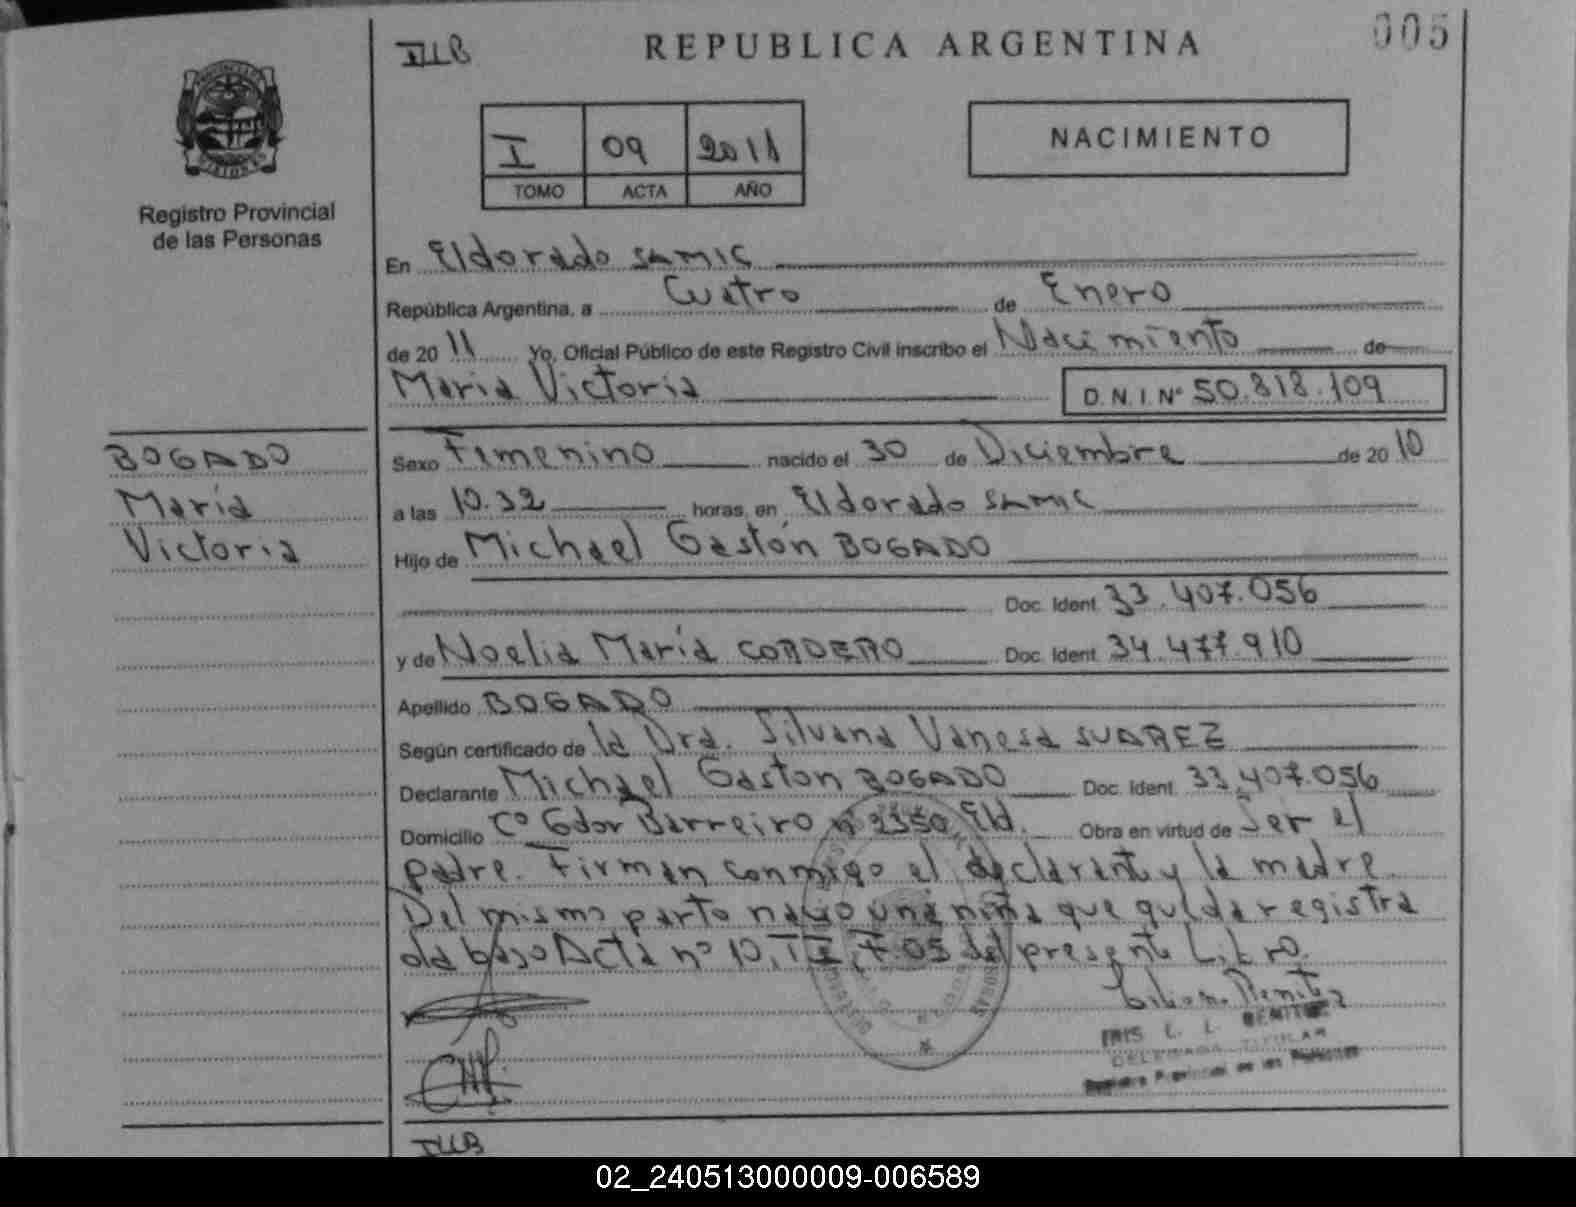 REPUBLICA ARGENTINA
005
I 09 2011
TOMO ACTA AÑO
NACIMIENTO
Registro Provincial
de las Personas
En Eldorado SAMIC
República Argentina, a Cuatro de Enero
de 2011 Yo, Oficial Público de este Registro Civil inscribo el Nacimiento de
María Victoria D.N.I. Nº 50.818.109
BOGADO
María
Victoria
Sexo Femenino nacido el 30 de Diciembre de 2010
a las 10.32 horas, en Eldorado SAMIC
Hijo de Michael Gastón BOGADO
Doc. Ident. 33.407.056
y de Noelia María CORDERO Doc. Ident. 34.477.910
Apellido BOGADO
Según certificado de la Dra. Silvana Vanesa SUAREZ
Declarante Michael Gaston BOGADO Doc. Ident. 33.407.056
Domicilio Cº Gdor Barreiro nº 2350 Eld. Obra en virtud de Ser el
padre. Firman conmigo el declarante y la madre.
Del mismo parto nacio una niña que queda registra
da bajo Acta nº 10, Tº I, Fº 05 del presente Libro.
IRIS L. L. BENITEZ
DELEGADA TITULAR
Registro Provincial de las Personas
02_240513000009-006589